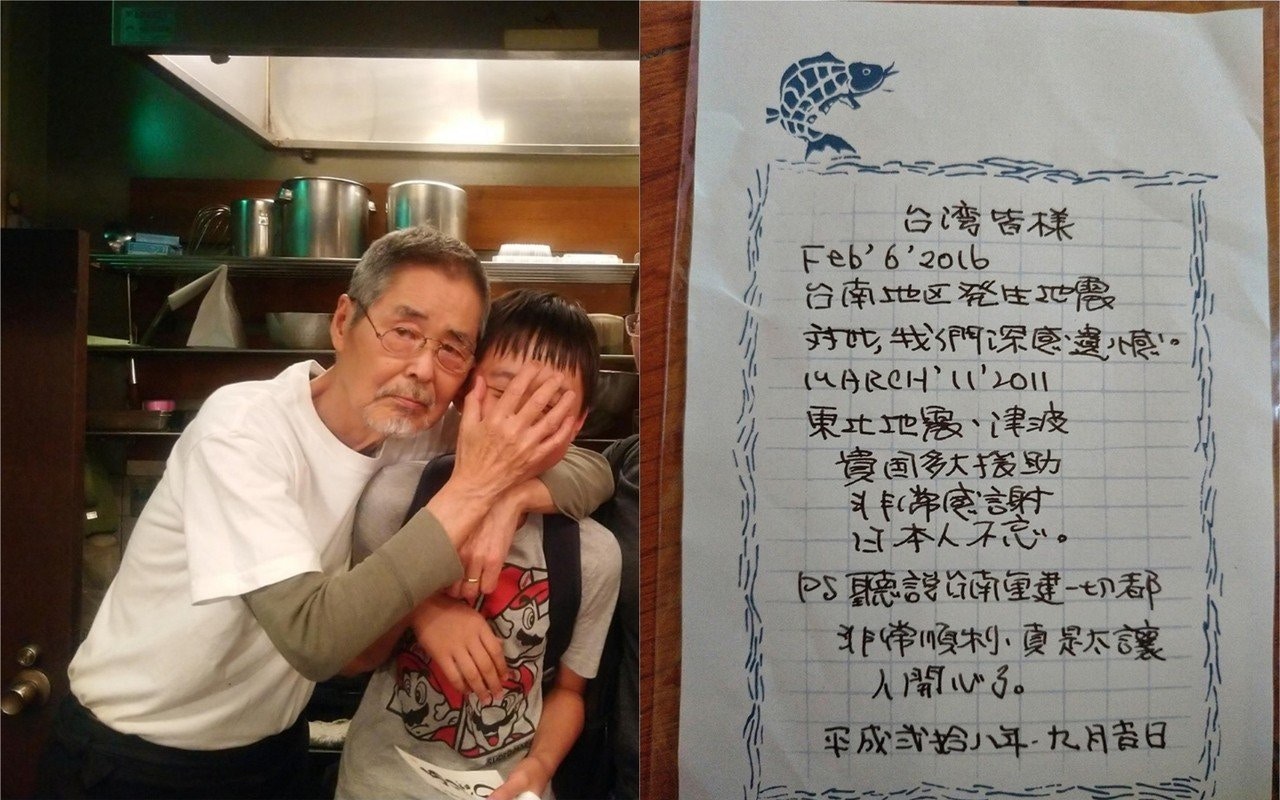 台湾皆様
Feb'6'2016
台南地区発生地震
対此,我们門深感遺憾。
MARCH'11'2011
東北地震、津波
貴国多大援助
非常感謝
日本人不忘。
PS 聽説台南重建一切都
非常順利、真是太讓
人開心了。
平成弐拾八年.九月吉日